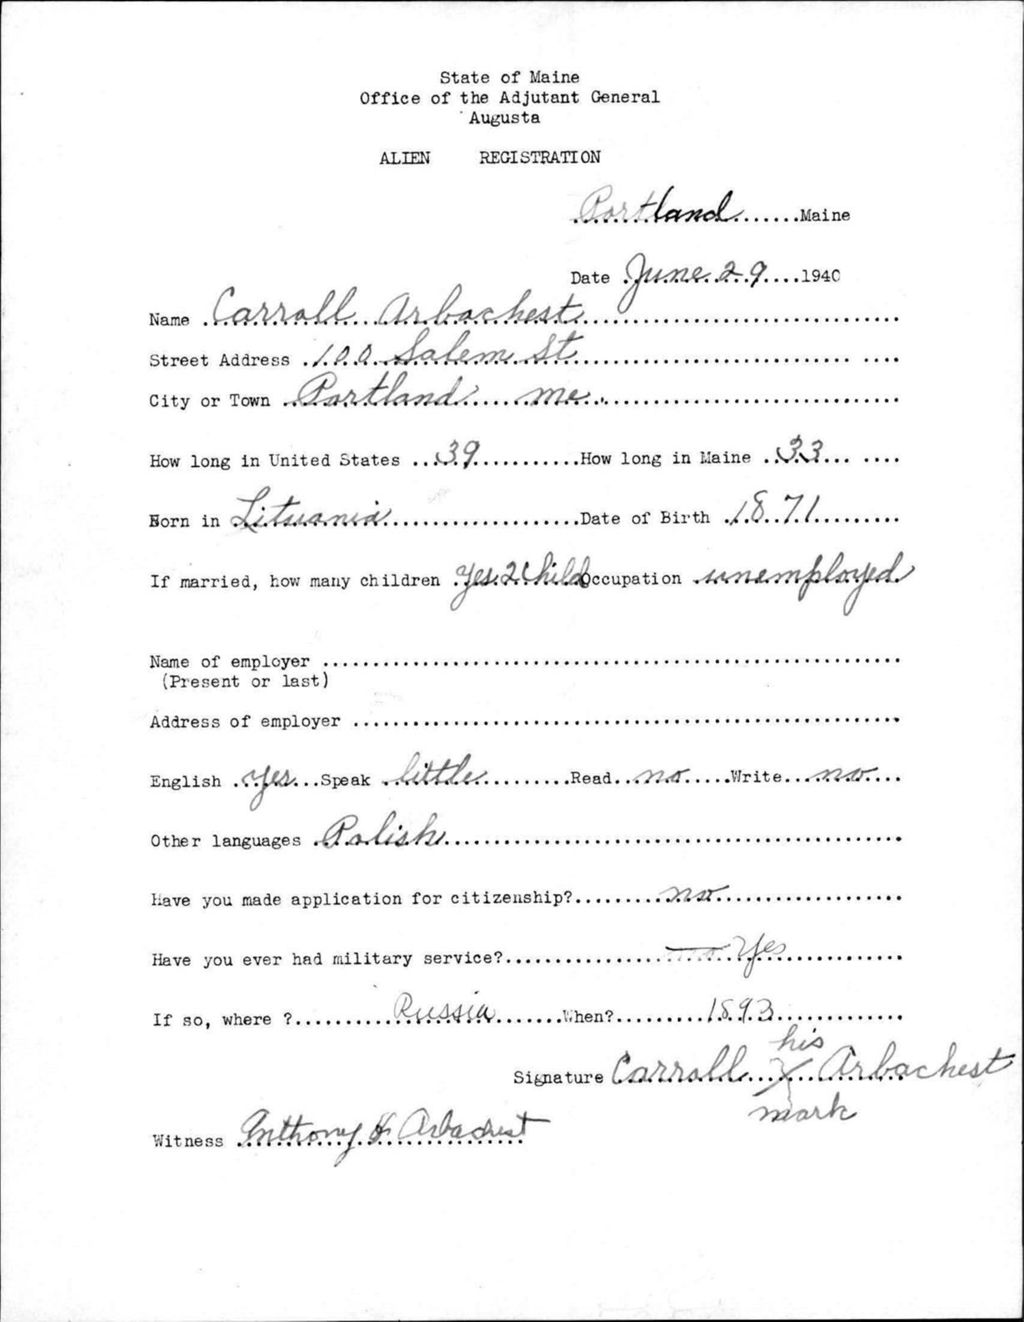 State of Maine
Office of the Adjutant General
Augusta
ALIEN REGISTRATION
Portland.......Maine
Date June 29....1940
Name Carroll Arbachest
Street Address 100 Salem St
City or Town Portland me.
How long in United States 39 How long in Maine 33
Born in Lituania Date of Birth 1871
If married, how many children yes 2 Child Occupation unemployed
Name of employer
(Present or last)
Address of employer
English yes Speak little Read no Write no
Other languages Polish
Have you made application for citizenship? no
Have you ever had military service? no Yes
If so, where ? Russia When? 1893
his
Signature Carroll X Arbachest
mark
Witness Anthony Arbachest